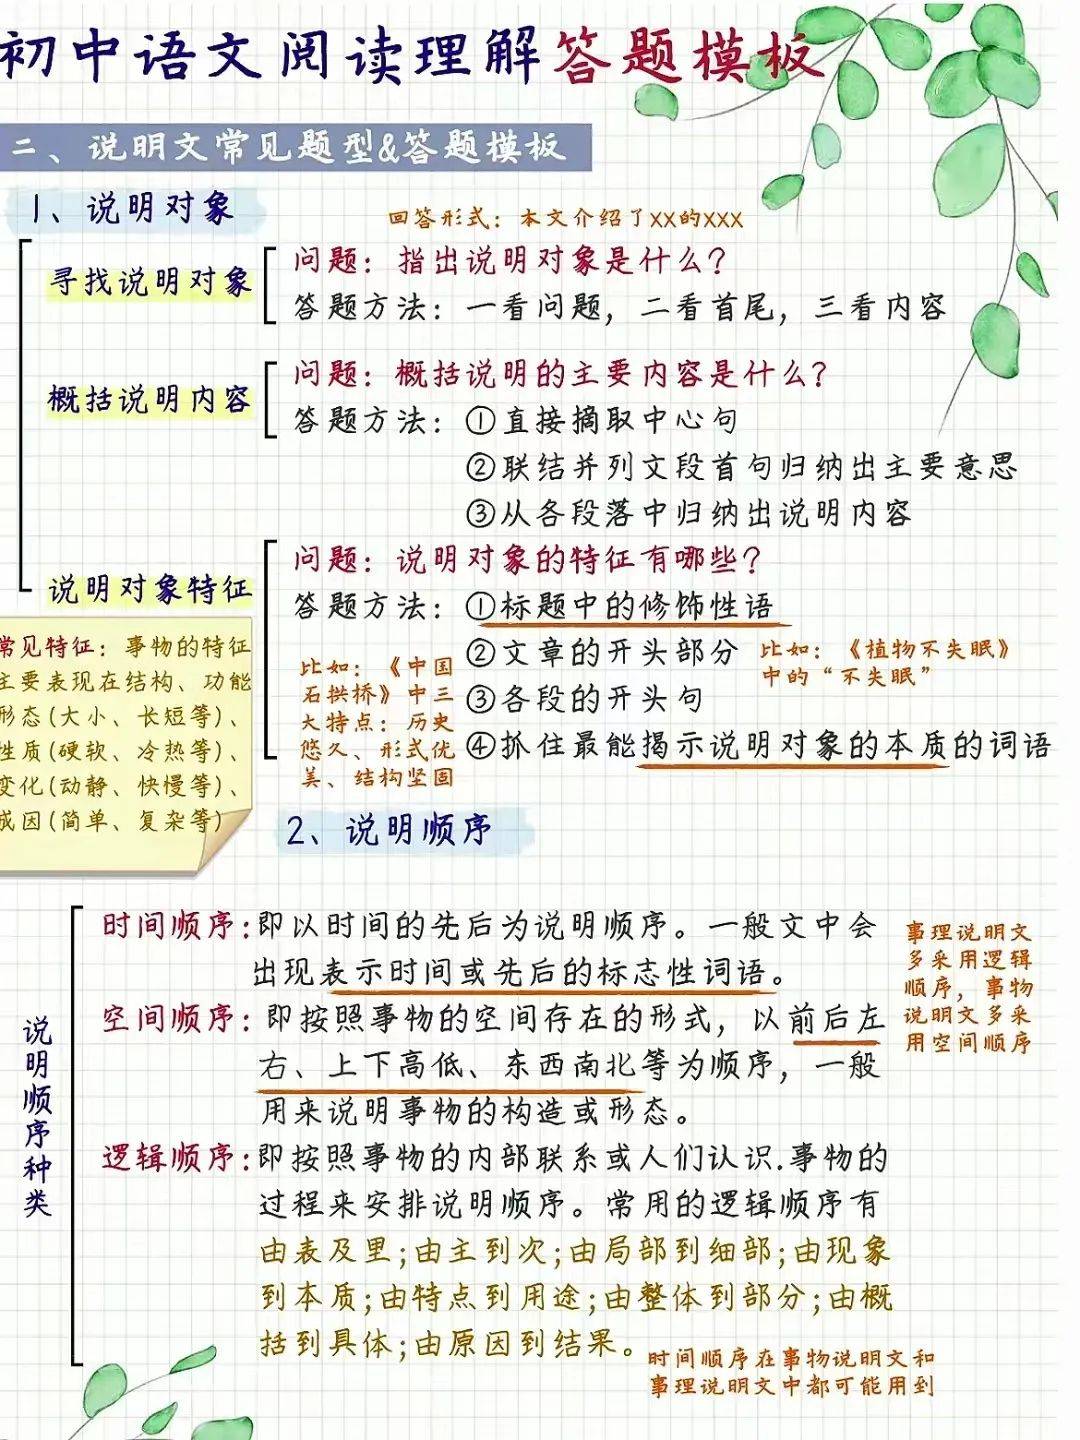 初中语文阅读理解答题模板
二、说明文常见题型&答题模板
1、说明对象
回答形式：本文介绍了XX的XXX
寻找说明对象
问题：指出说明对象是什么？
答题方法：一看问题，二看首尾，三看内容
概括说明内容
问题：概括说明的主要内容是什么？
答题方法：①直接摘取中心句
②联结并列文段首句归纳出主要意思
③从各段落中归纳出说明内容
说明对象特征
问题：说明对象的特征有哪些？
答题方法：①标题中的修饰性语
②文章的开头部分
比如：《植物不失眠》
中的“不失眠”
③各段的开头句
④抓住最能揭示说明对象的本质的词语
比如：《中国
石拱桥》中三
大特点：历史
悠久、形式优
美、结构坚固
常见特征：事物的特征
主要表现在结构、功能
形态(大小、长短等)、
性质(硬软、冷热等)、
变化(动静、快慢等)、
成因(简单、复杂等)
2、说明顺序
说明顺序种类
时间顺序:即以时间的先后为说明顺序。一般文中会
出现表示时间或先后的标志性词语。
空间顺序:即按照事物的空间存在的形式，以前后左
右、上下高低、东西南北等为顺序，一般
用来说明事物的构造或形态。
事理说明文
多采用逻辑
顺序，事物
说明文多采
用空间顺序
逻辑顺序:即按照事物的内部联系或人们认识.事物的
过程来安排说明顺序。常用的逻辑顺序有
由表及里;由主到次;由局部到细部;由现象
到本质;由特点到用途;由整体到部分;由概
括到具体;由原因到结果。
时间顺序在事物说明文和
事理说明文中都可能用到